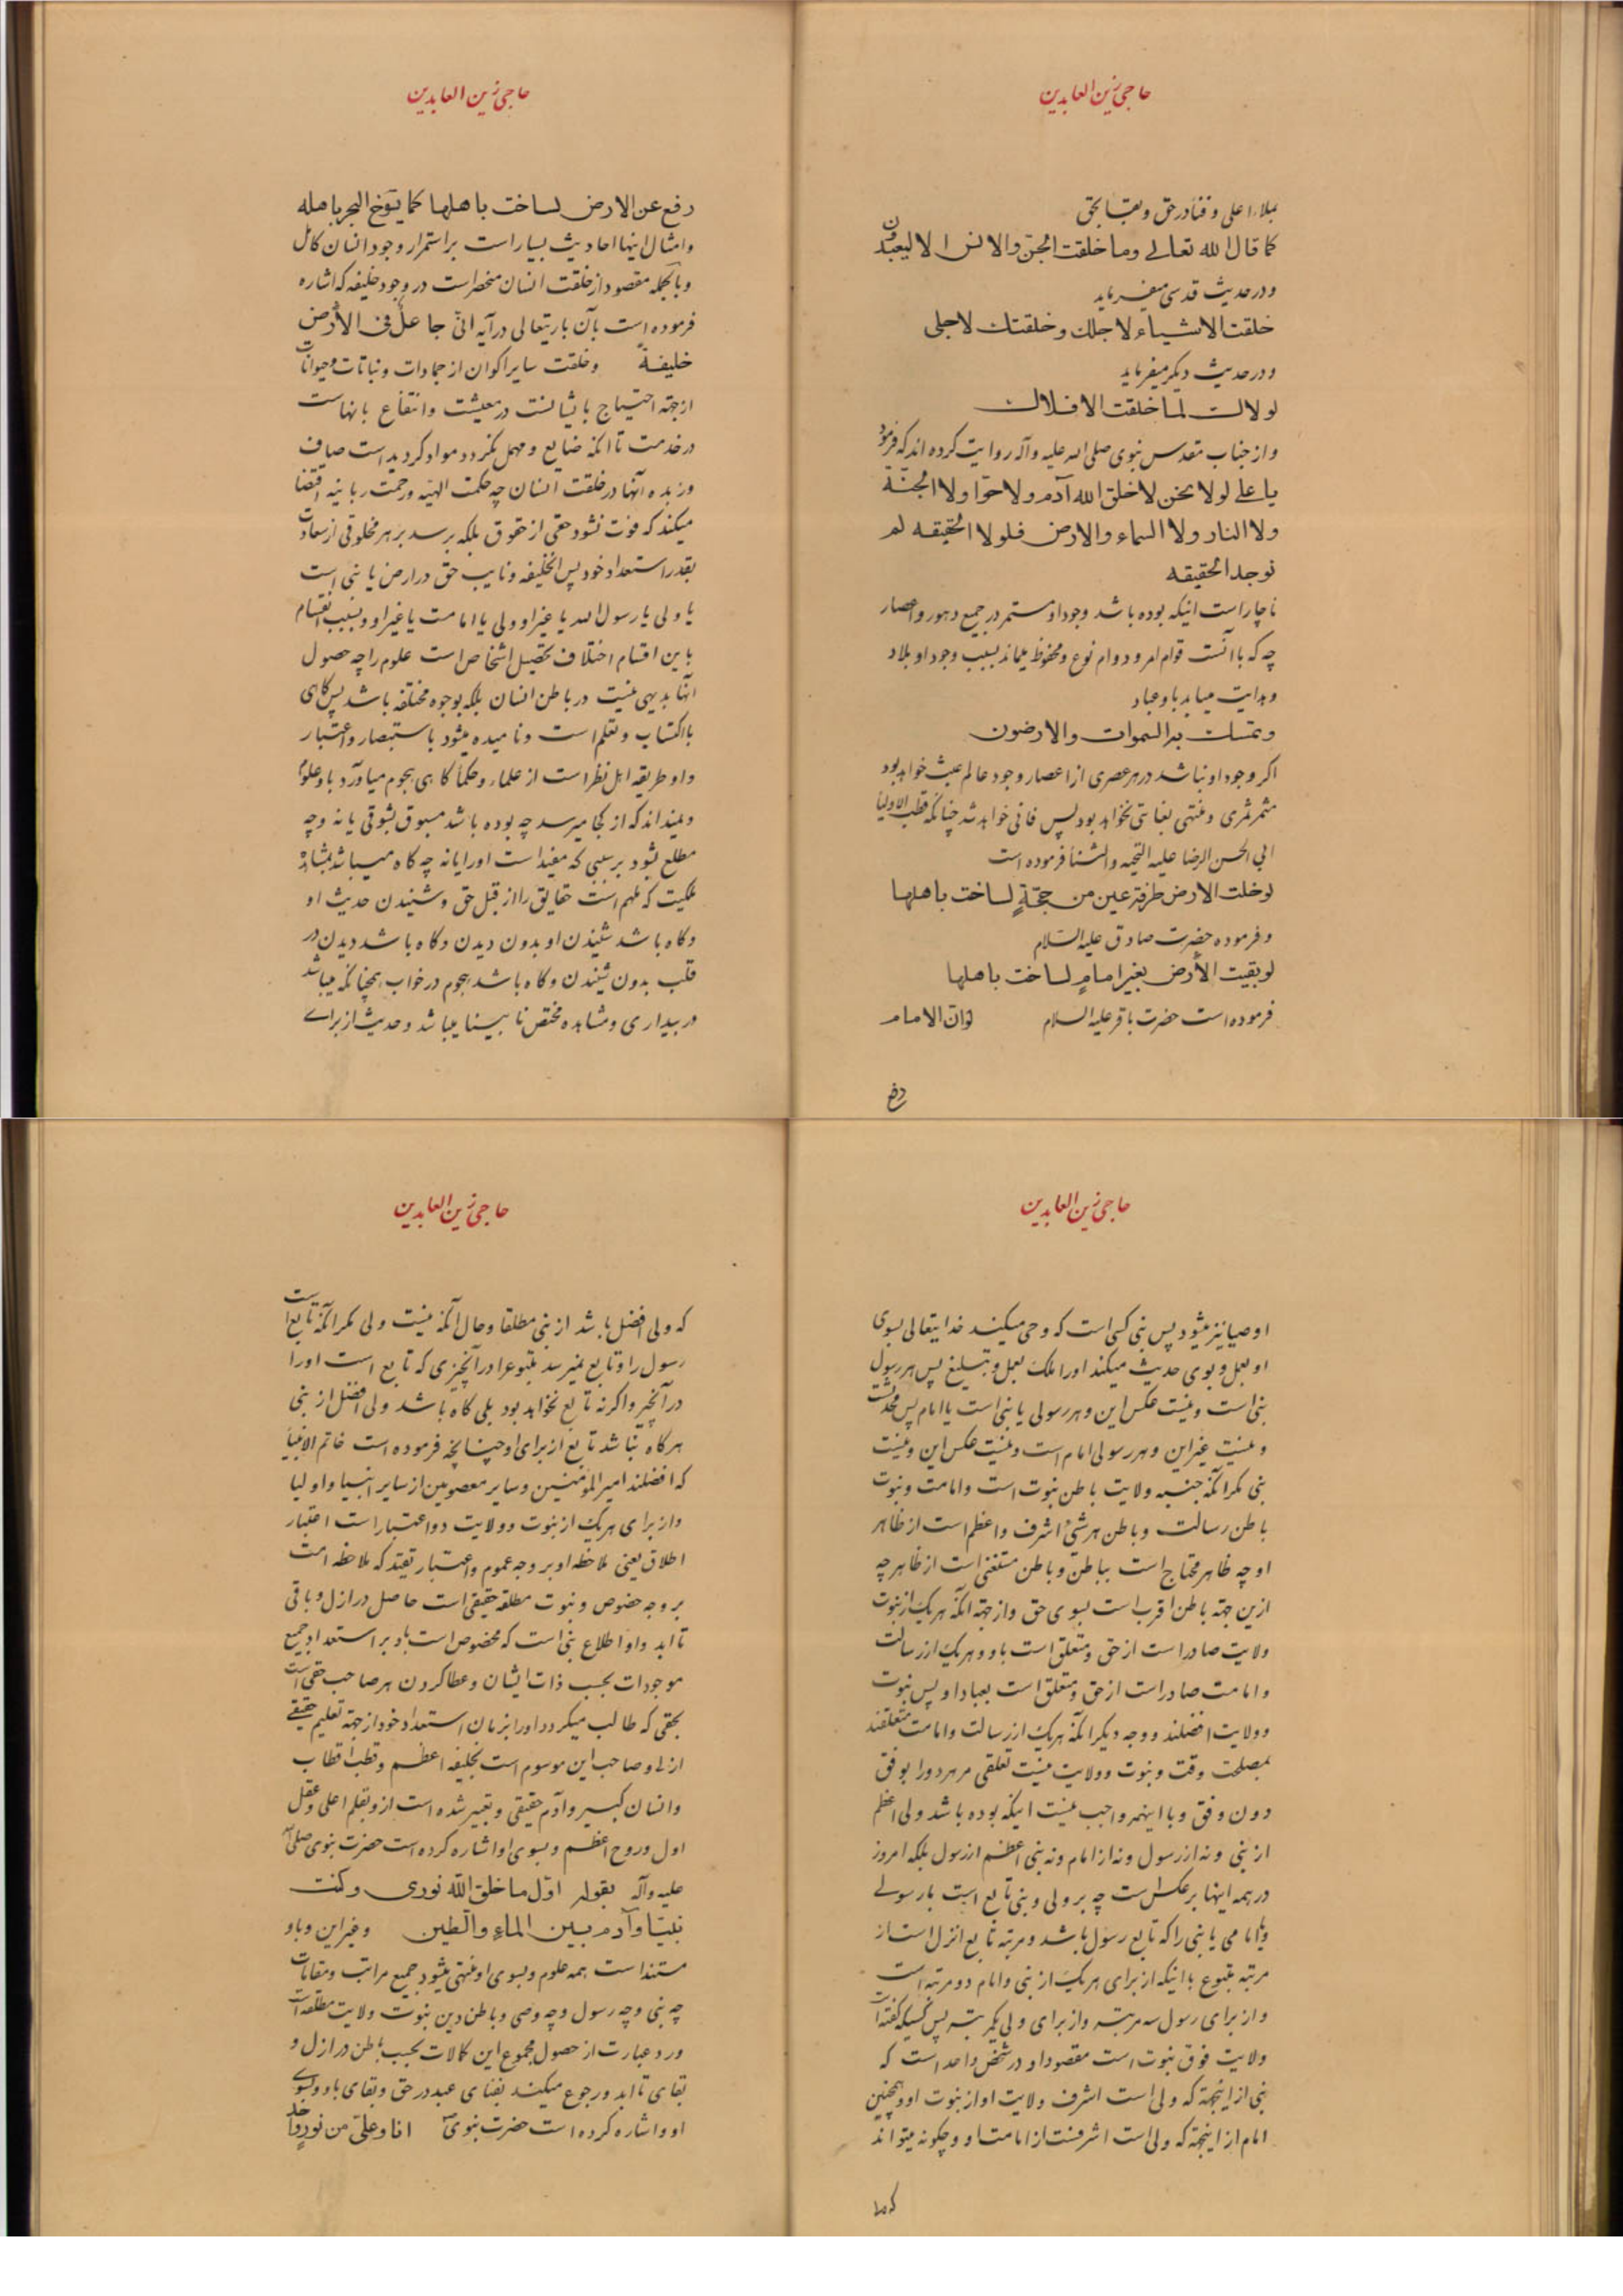 حاجی زین العابدین
بملاء اعلی و فنا در حق و بقا بحق
کما قال الله تعالی وما خلقت الجنّ والانس الا لیعبدون
و در حدیث قدسی میفرماید
خلقت الاشیاء لاجلك وخلقتك لاجلی
و در حدیث دیکر میفرماید
لولاك لما خلقت الافلاك
و از جناب مقدس نبوی صلی الله علیه وآله روایت کرده اند که فرمود
یا علی لولا نحن لاخلق الله آدم ولا حوّا ولا الجنّة
ولا النار ولا السماء والارض فلولا الحقیقه لم
توجد الحقیقه
ناچار است اینکه بوده باشد وجود او مستمر در جمیع دهور و اعصار
چه که با آنست قوام امر و دوام نوع و محفوظ میماند بسبب وجود او بلاد
و هدایت میابد باو عباد
وتمسك به السموات والارضون
اکر وجود او نباشد در هر عصری از اعصار وجود عالم عبث خواهد بود
مثمر ثمری و منتهی بغایتی نخواهد بود پس فانی خواهد شد چنانکه قطب الاولیا
ابی الحسن الرضا علیه التحیه والثنا فرموده است
لوخلت الارض طرفة عین من حجّةٍ لساخت باهلها
و فرموده حضرت صادق علیه السّلام
لوبقیت الأرض بغیر امامٍ لساخت باهلها
فرموده است حضرت باقر علیه السلام لوان الامام
رفع
حاجی زین العابدین
رفع عن الارض لساخت باهلها کما یتوّخ البحر باهله
و امثال اینها احادیث بسیار است بر استمرار وجود انسان کامل
و بالجمله مقصود از خلقت انسان منحصر است در وجود خلیفه که اشاره
فرموده است بآن باریتعالی در آیه انّی جاعلٌ فی الأرض
خلیفةً و خلقت سایر اکوان از جمادات و نباتات و حیوانات
از جهته احتیاج بایشانست در معیشت و انتفاع بانهاست
در خدمت تا انکه ضایع و مهمل نکردد مواد کردیده است صاف
و زبده آنها در خلقت انسان چه حکمت الهیّه و رحمت ربانیه اقتضا
میکند که فوت نشود حقی از حقوق بلکه برسد بر هر مخلوقی از سعادت
بقدر استعداد خود پس الخلیفه و نایب حق در ارض یا نبی است
یا ولی یا رسول الله یا غیر او ولی یا امامت یا غیر او و بسبب انقسام
باین اقسام اختلاف تحصیل اشخاص است علوم را چه حصول
آنها بدیهی نیست در باطن انسان بلکه بوجوه مختلفه باشد پس کاهی
باکتساب و تعلم است و نامیده میشود باستبصار و اعتبار
و او طریقه اهل نظر است از علماء و حکما کاهی هجوم میاورد باو علوم
و نمیداند که از کجا میرسد چه بوده باشد مسبوق بشوقی یا نه و چه
مطلع بشود بر سببی که مفید است او را یا نه چه کاه میباشد بمشاهده
ملکیت که ملهم است حقایق را از قبل حق و شنیدن حدیث او
و کاه باشد شنیدن او بدون دیدن و کاه باشد دیدن در
قلب بدون شنیدن و کاه باشد هجوم در خواب همچنانکه میباشد
در بیداری و مشاهده مختص نا بینا میباشد و حدیث از برای
حاجی زین العابدین
اوصیا نیز میشود پس نبی کسی است که وحی میکند خدایتعالی بسوی
او بعل و بوی حدیث میکند او را ملک بعمل و تبلیغ پس هر رسول
نبی است و نیست عکس این و هر رسولی یا نبی است یا امام پس محدثست
و نیست غیر این و هر رسولی امام است و نیست عکس این و نیست
نبی مکر انکه جنبه ولایت باطن نبوت است و امامت و نبوت
باطن رسالت و باطن هر شیء اشرف و اعظم است از ظاهر
او چه ظاهر محتاج است بباطن و باطن مستغنی است از ظاهر چه
ازین جهته باطن اقرب است بسوی حق و از جهته انکه هریک از نبوت
ولایت صادر است از حق و متعلق است باو و هریک از رسالت
و امامت صادر است از حق و متعلق است بعباد او پس نبوت
و ولایت افضلند و وجه دیکر انکه هریک از رسالت و امامت متعلقند
بمصلحت وقت و نبوت و ولایت نیست تعلقی مر هردو را بوقتی
دون وقتی و با اینهمه واجب نیست اینکه بوده باشد ولی اعظم
از نبی و نه از رسول و نه از امام و نه نبی اعظم از رسول بلکه امروز
در همه اینها بر عکس است چه بر ولی و نبی تابع است بارسولی
و یا امامی یا نبی را که تابع رسول باشد و مرتبه تابع انزل است از
مرتبه متبوع با اینکه از برای هریک از نبی و امام دو مرتبه است
و از برای رسول سه مرتبه و از برای ولی یکمرتبه پس کسیکه کفته است
ولایت فوق نبوت است مقصود او در شخص واحد است که
نبی از اینجهته که ولی است اشرف ولایت او از نبوت او و همچنین
امام از اینجهته که ولی است اشرفست از امامت او و چکونه میتواند
که ولی
حاجی زین العابدین
که ولی افضل باشد از نبی مطلقا و حال آنکه نیست ولی مکر انکه تابع است
رسول را و تابع نمیرسد متبوع را در آنچیزی که تابع است او را
در آنچیز و اکر نه تابع نخواهد بود بلی کاه باشد ولی افضل از نبی
هرکاه نباشد تابع از برای او چنانچه فرموده است خاتم الانبیا
که افضلند امیر المؤمنین و سایر معصومین از سایر انبیا و اولیا
و از برای هریک از نبوت و ولایت دو اعتبار است اعتبار
اطلاق یعنی ملاحظه او بر وجه عموم و اعتبار تقیّد که ملاحظه است
بر وجه خصوص و نبوت مطلقه حقیقی است حاصل در ازل و باقی
تا ابد و او اطلاع نبی است که مخصوص است باو بر استعداد جمیع
موجودات بحسب ذات ایشان و عطا کردن هر صاحب حقی است
بحقی که طالب میکردد او را بزبان استعداد خود از جهته تعلیم حقیقی
ازلی و صاحب این موسوم است بخلیفه اعظم و قطب اقطاب
و انسان کبیر و آدم حقیقی و تعبیر شده است از و بقلم اعلی و عقل
اول و روح اعظم و بسوی او اشاره کرده است حضرت نبوی صلی الله
علیه وآله بقوله اوّل ما خلق اللّه نوری وکنت
نبیّا وآدم بین الماء والطین و غیر این و باو
مستند است همه علوم و بسوی او منتهی میشود جمیع مراتب و مقامات
چه نبی و چه رسول و چه وصی و باطن دین نبوت ولایت مطلقه است
و او عبارت از حصول مجموع این کمالات بحسب باطن در ازل و
بقای تا ابد و رجوع میکند بفنای عبد در حق و بقای باو و بسوی
او و اشاره کرده است حضرت نبوی انا وعلیّ من نورٍ واحد